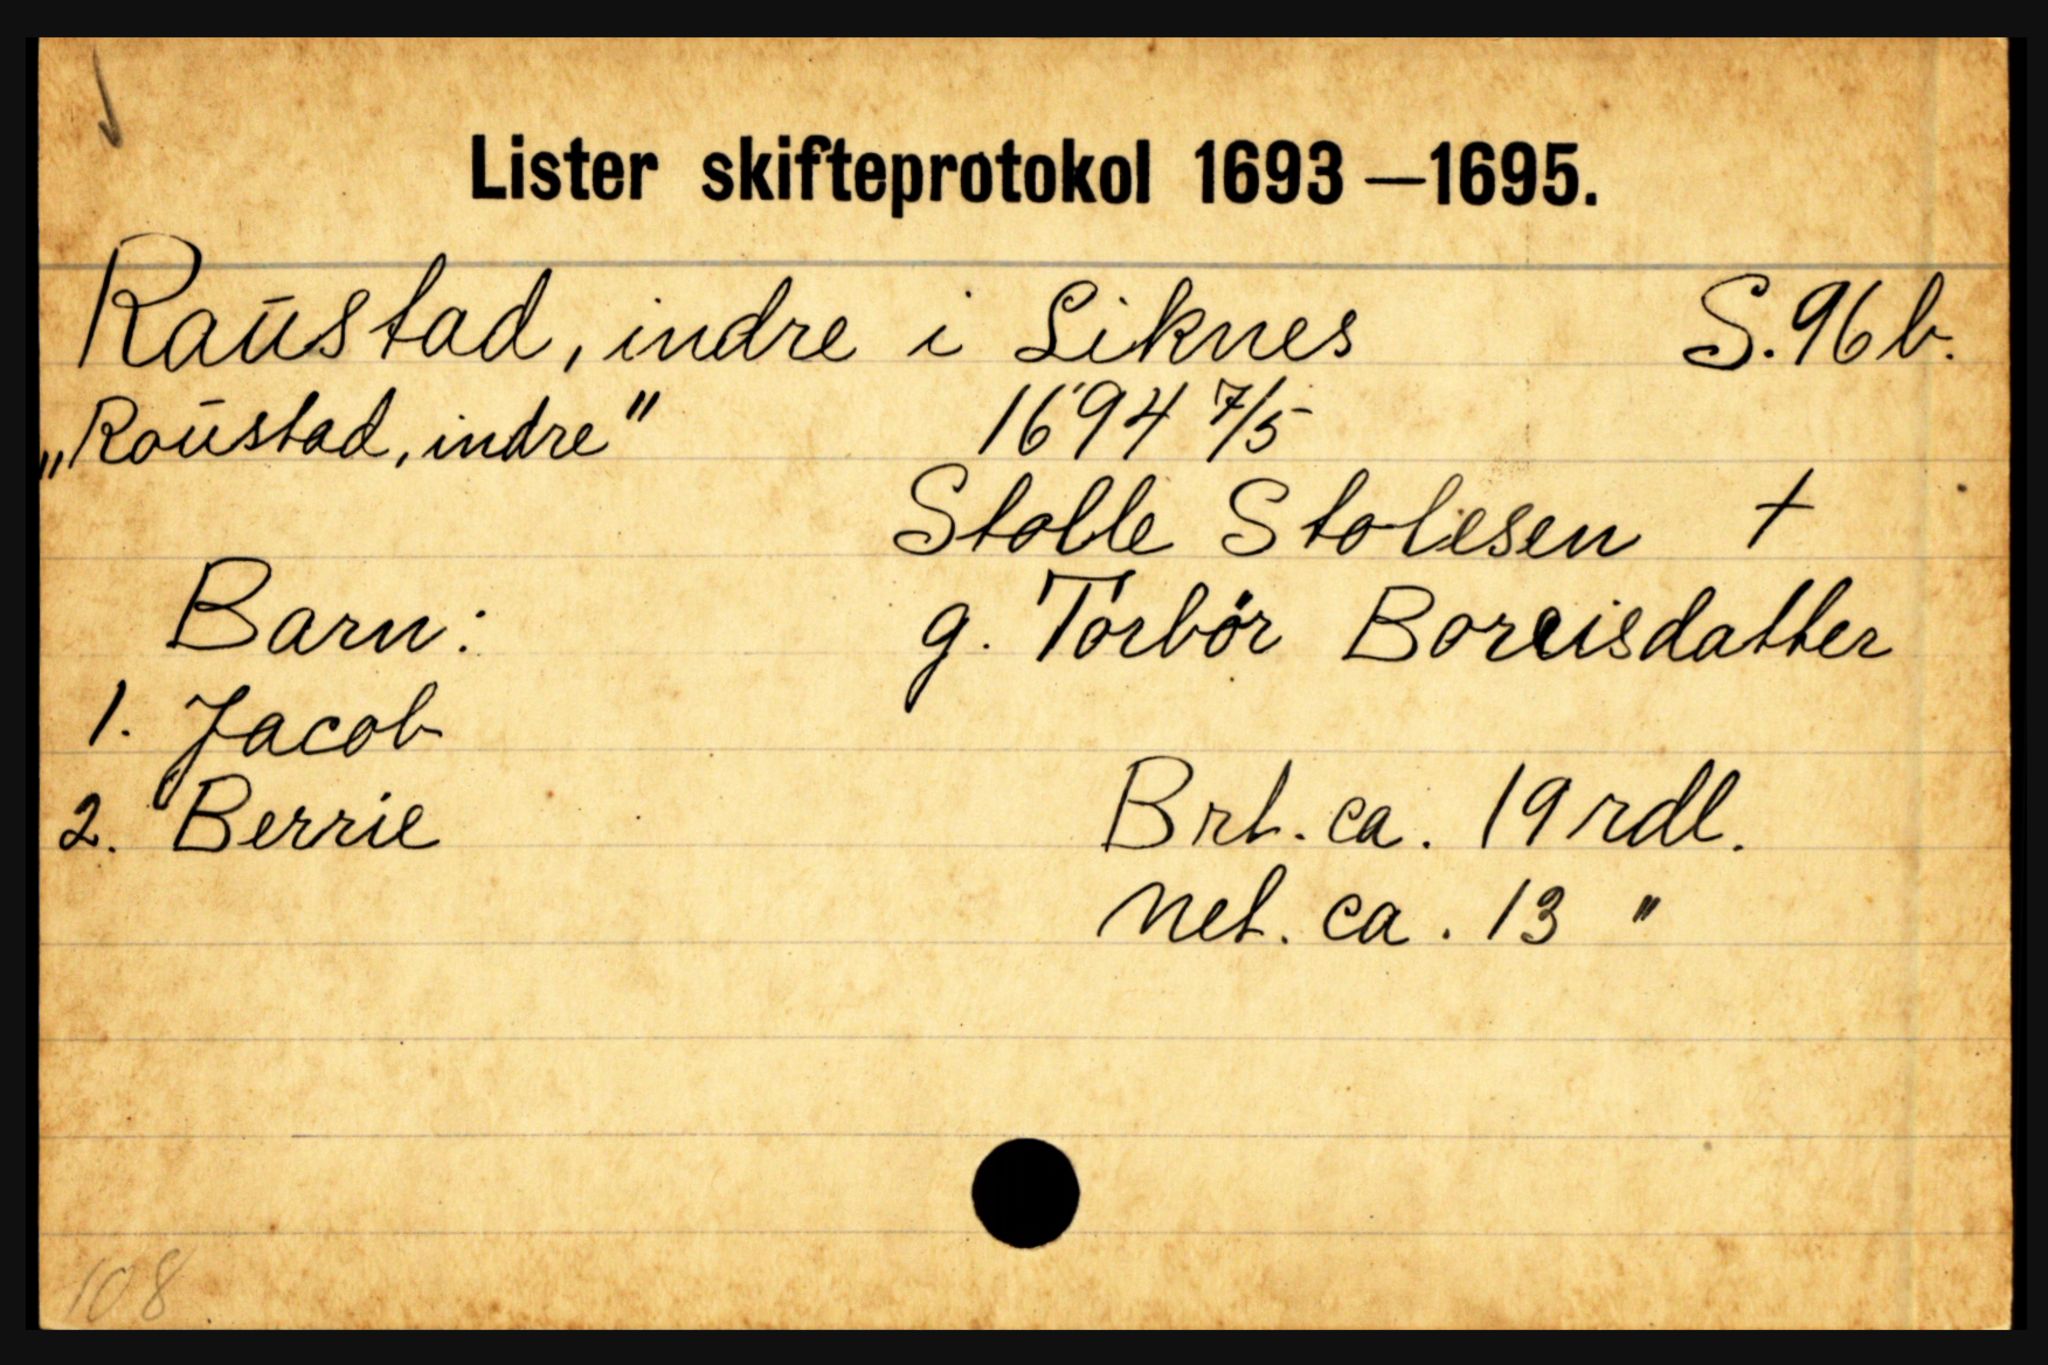 Lister skifteprotokol 1693—1695.
Raūstad, indre i Liknes S. 96 b.
„Roūstad, indre" 1694 7/5
Stolle Stolesen +
Barn: g. Torbör Boreisdatter
1. Jacob
2. Berrie Brt. ca. 19 rdl.
net. ca. 13 "
108